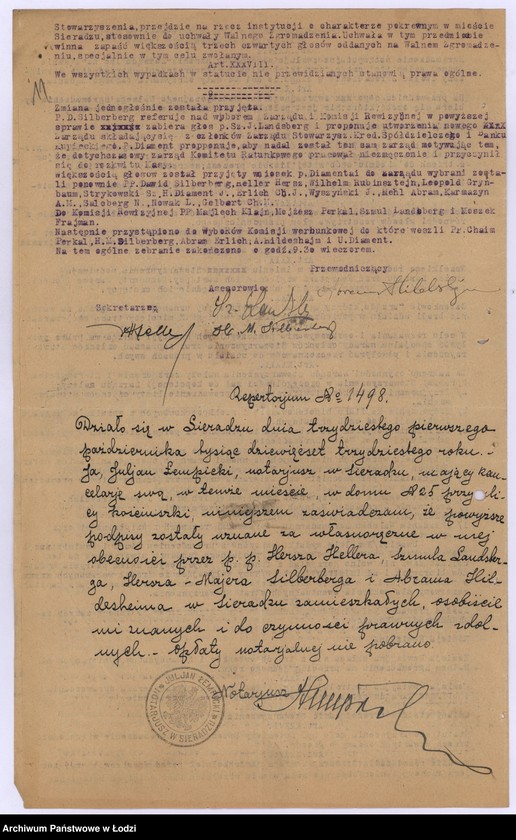 Stowarzyszenia, przejdzie na rzecz instytucji o charakterze pokrewnym w mieście
Sieradzu, stosownie do uchwały Walnego Zgromadzenia. Uchwała w tym przedmiocie
winna zapaść większością trzech czwartych głosów oddanych na Walnem Zgromadze-
niu, specjalnie w tym celu zwołanym.
Art.XXXVIII.
We wszystkich wypadkach w statucie nie przewidzianych stanowią prawa ogólne.
Zmiana jednogłośnie została przyjęta.
P.D. Silberberg referuje nad wyborem Zarządu i Komisji Rewizyjnej w powyższej
sprawie zabiera głos p.Sz.J. Landsberg i proponuje utworzenia nowego
Zarządu składającyję z członków Zarządu Stowarzysz. Kred. Spółdzielczego i Banku
Kupieckiego. P. Diament proponuje, aby nadal został ten sam zarząd motywując tem,
że dotychczasowy zarząd Komitetu Ratunkowego pracował niezmęczenie i przyczynił
się do rozkwitu
większością głosów został przyjęty wniosek p. Diamenta do zarządu wybrani zosta-
li ponownie PP. Dawid Silberberg, Heller Hersz, Wilhelm Rubinsztejn, Leopold Gryn-
baum, Strykowski Sz. H. Diament J., Erlich Ch.J. Wyszyński J., Mehl Abram, Karmazyn
A.M., Saloberg N., Nowak L., Gelbart Ch.M.
Do Komisji Rewizyjnej PP. Majlech Klajn, Mojżesz Perkal, Szmul Landsberg i Moszek
Frajman.
Następnie przystąpiono do wyborów Komisji werbunkowej do które weszli PP. Chaim
Perkal, H.M. Silberberg, Abram Erlich, A. Hildeshajm i U. Diament.
Na tem ogólne zebranie zakończono o godz. 9.30 wieczorem.
Przewodniczący
Asesorowie
Sekretarz:
HHeller
H. M. Silberberg
Repertorjum No 1498.
Działo się w Sieradzu dnia trzydziestego pierwszego
października tysiąc dziewięćset trzydziestego roku. -
Ja, Juljan Łempicki, notarjusz w Sieradzu, mający kan-
celarję swą, w temże mieście, w domu N25 przy uli-
cy Kościuszki, niniejszem zaświadczam, że powyższe
podpisy zostały uznane za własnoręczne w mej
obecności przez p.p. Hersza Hellera, Szmula Landsber-
ga, Hersza-Majera Silberberga i Abrama Hil-
desheima w Sieradzu zamieszkałych, osobiście
mi znanych i do czynności prawnych zdol-
nych. - Opłaty notarjalnej nie pobrano.
Notarjusz
JULJAN ŁEMPICKI
NOTARJUSZ W SIERADZU
Archiwum Państwowe w Łodzi